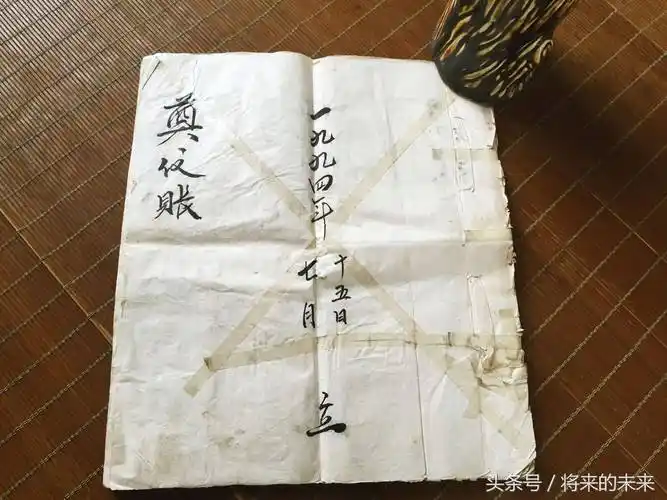 奠仪賬
一九九四年
七月
十五日
立
头条号／将来的未来